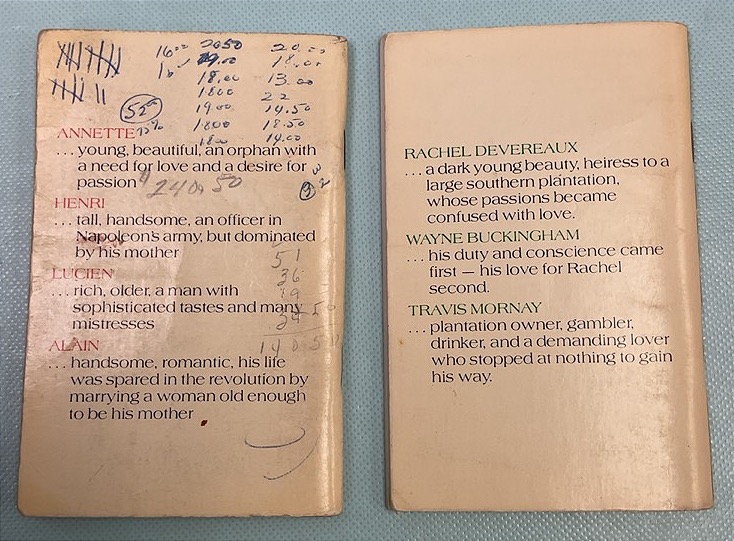 16 00 20 50 20 00
19.00 18.00
18.00 13.00
1800 22
19.00 14.50
1800 18.50
1800 14.00
52
ANNETTE
... young, beautiful, an orphan with
a need for love and a desire for
passion
240.50
HENRI
... tall, handsome, an officer in
Napoleon's army, but dominated
by his mother
51
36
LUCIEN
... rich, older, a man with
sophisticated tastes and many
mistresses
ALAIN
... handsome, romantic, his life
was spared in the revolution by
marrying a woman old enough
to be his mother
RACHEL DEVEREAUX
... a dark young beauty, heiress to a
large southern plantation,
whose passions became
confused with love.
WAYNE BUCKINGHAM
... his duty and conscience came
first — his love for Rachel
second.
TRAVIS MORNAY
... plantation owner, gambler,
drinker, and a demanding lover
who stopped at nothing to gain
his way.